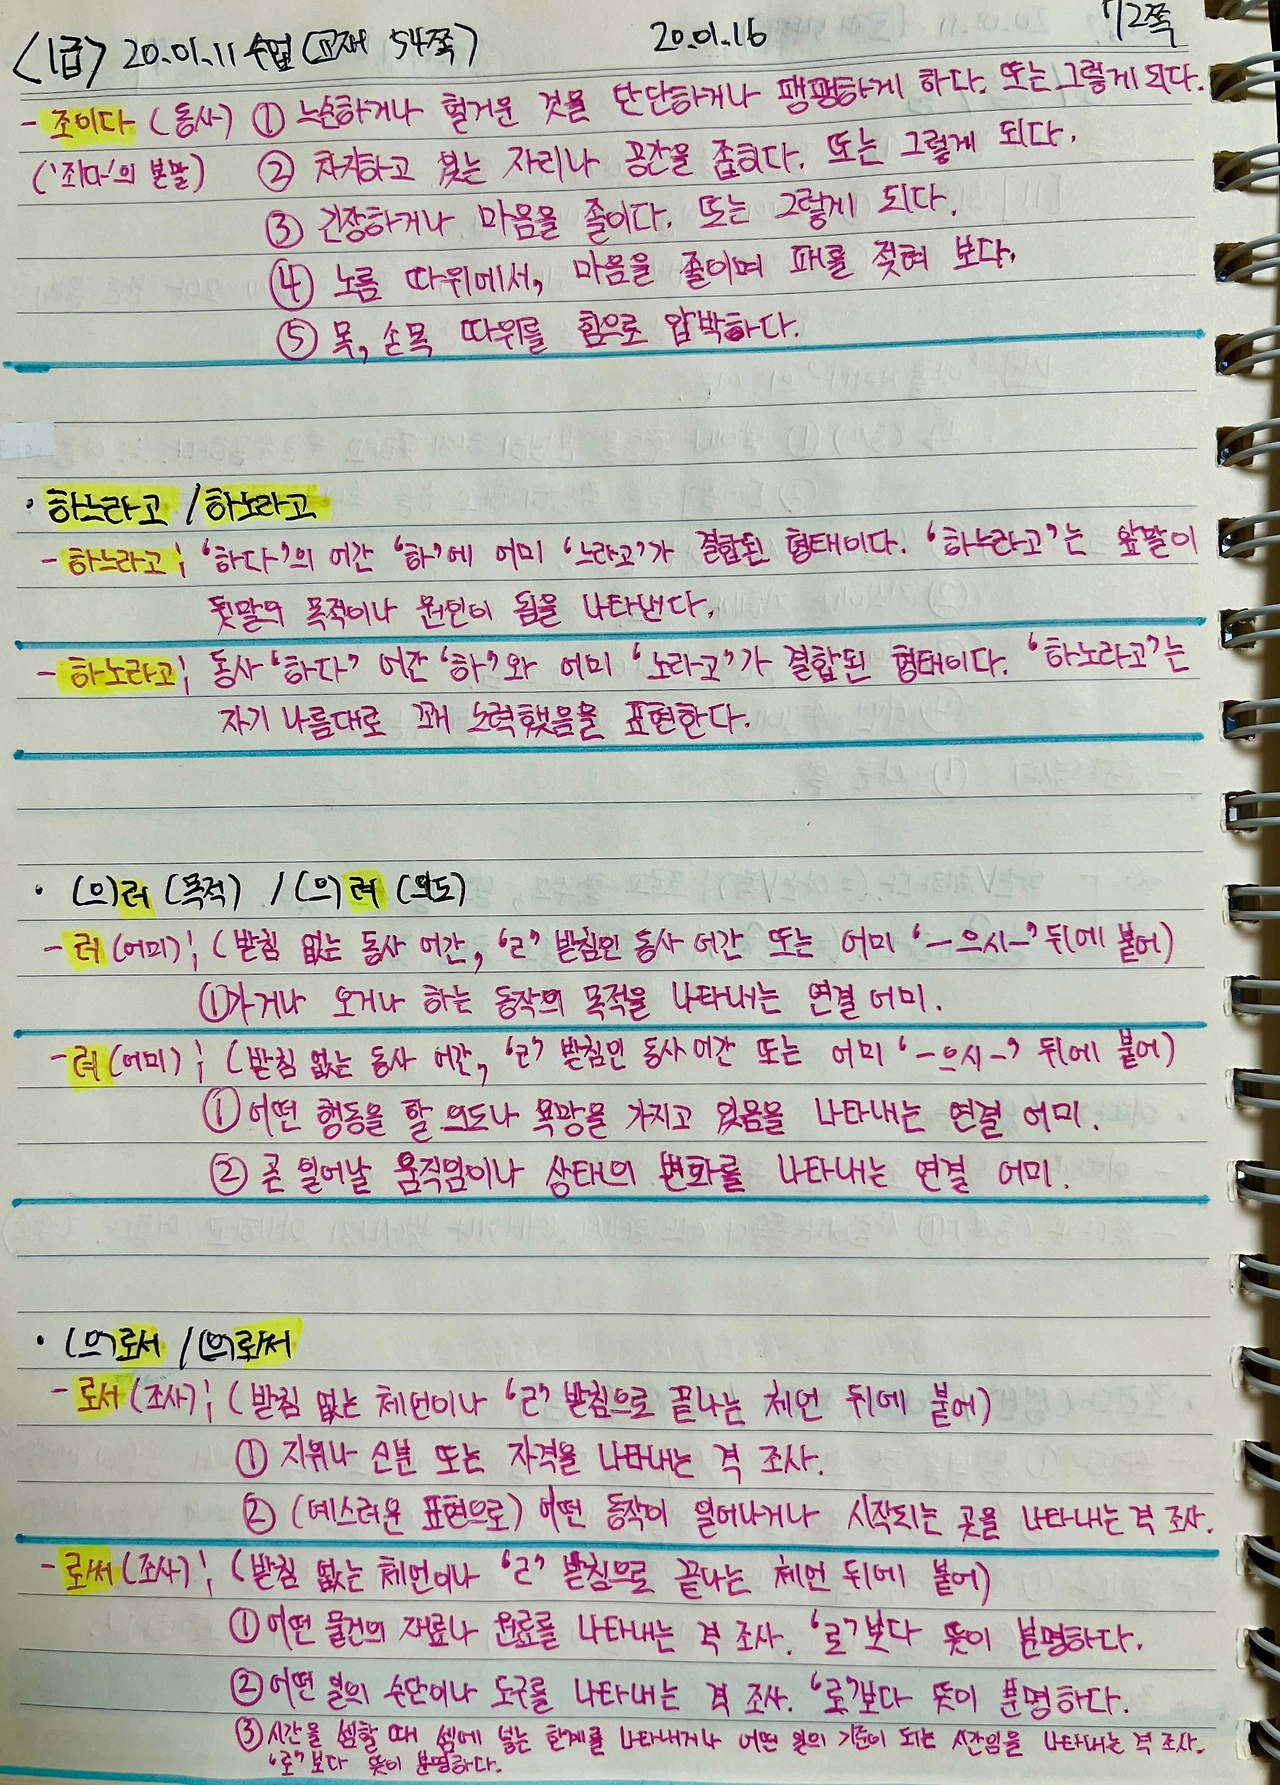 <1급> 20.01.11 수업 (교재 54쪽) 20.01.16 72쪽
- 조이다 (동사) ① 느슨하거나 헐거운 것을 단단하거나 팽팽하게 하다. 또는 그렇게 되다.
('죄다'의 본말) ② 차지하고 있는 자리나 공간을 좁히다. 또는 그렇게 되다.
③ 긴장하거나 마음을 졸이다. 또는 그렇게 되다.
④ 노름 따위에서, 마음을 졸이며 패를 젖혀 보다.
⑤ 목, 손목 따위를 힘으로 압박하다.
· 하느라고 / 하노라고
- 하느라고; '하다'의 어간 '하'에 어미 '느라고'가 결합된 형태이다. '하느라고'는 앞말이
뒷말의 목적이나 원인이 됨을 나타낸다.
- 하노라고; 동사 '하다' 어간 '하'와 어미 '노라고'가 결합된 형태이다. '하노라고'는
자기 나름대로 꽤 노력했음을 표현한다.
· (으)러 (목적) / (으)려 (의도)
- 러 (어미); (받침 없는 동사 어간, 'ㄹ' 받침인 동사 어간 또는 어미 '-으시-' 뒤에 붙어)
① 가거나 오거나 하는 동작의 목적을 나타내는 연결 어미.
- 려 (어미); (받침 없는 동사 어간, 'ㄹ' 받침인 동사 어간 또는 어미 '-으시-' 뒤에 붙어)
① 어떤 행동을 할 의도나 욕망을 가지고 있음을 나타내는 연결 어미.
② 곧 일어날 움직임이나 상태의 변화를 나타내는 연결 어미.
· (으)로서 / (으)로써
- 로서 (조사); (받침 없는 체언이나 'ㄹ' 받침으로 끝나는 체언 뒤에 붙어)
① 지위나 신분 또는 자격을 나타내는 격 조사.
② (예스러운 표현으로) 어떤 동작이 일어나거나 시작되는 곳을 나타내는 격 조사.
- 로써 (조사); (받침 없는 체언이나 'ㄹ' 받침으로 끝나는 체언 뒤에 붙어)
① 어떤 물건의 재료나 원료를 나타내는 격 조사. '로'보다 뜻이 분명하다.
② 어떤 일의 수단이나 도구를 나타내는 격 조사. '로'보다 뜻이 분명하다.
③ 시간을 셈할 때 셈에 넣는 한계를 나타내거나 어떤 일의 기준이 되는 시간임을 나타내는 격 조사.
'로'보다 뜻이 분명하다.